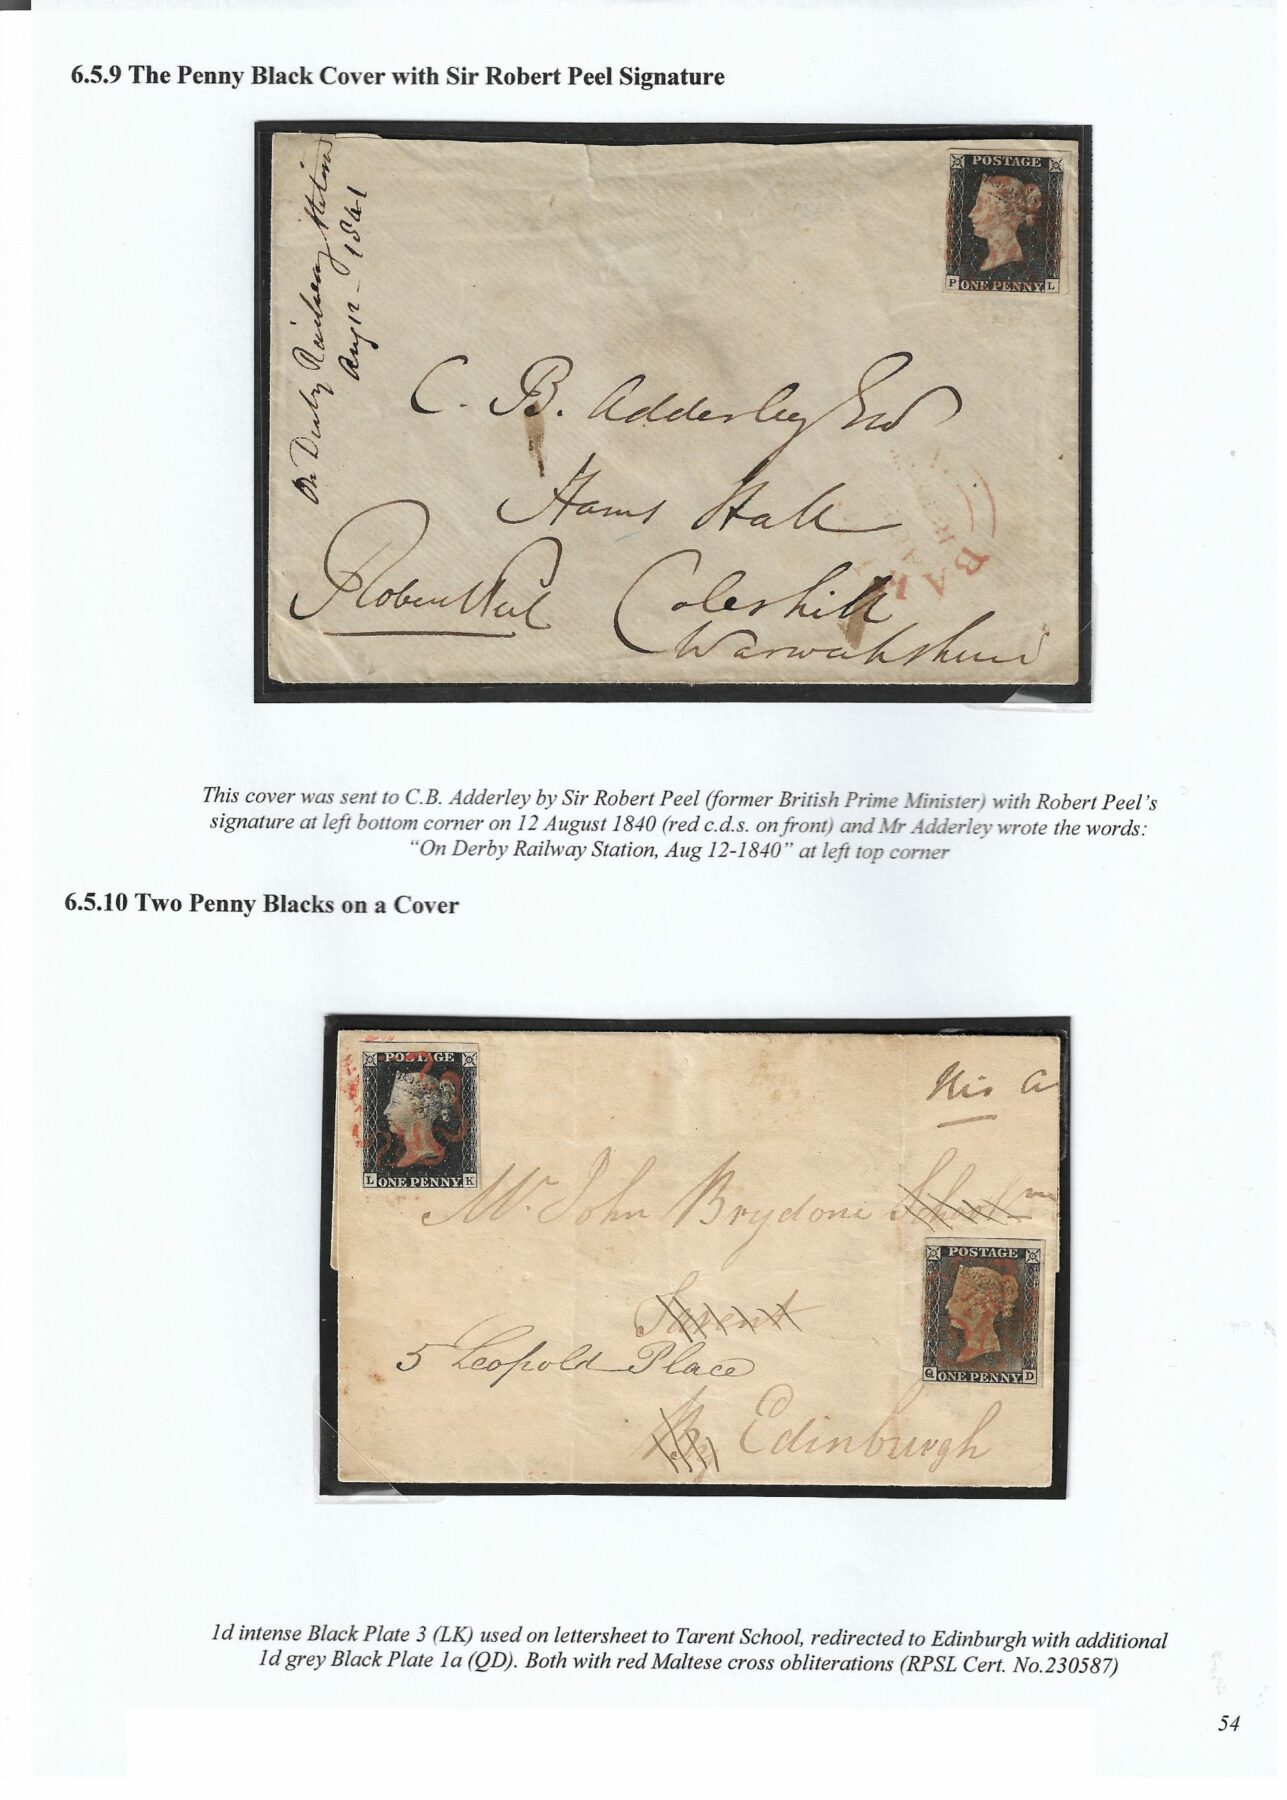 6.5.9 The Penny Black Cover with Sir Robert Peel Signature
On Derby Railway Station
Aug 12 - 1841
POSTAGE
P ONE PENNY L
C. B. Adderley Esq
Hams Hall
Robert Peel
Coleshill
Warwakshire
This cover was sent to C.B. Adderley by Sir Robert Peel (former British Prime Minister) with Robert Peel's
signature at left bottom corner on 12 August 1840 (red c.d.s. on front) and Mr Adderley wrote the words:
"On Derby Railway Station, Aug 12-1840" at left top corner
6.5.10 Two Penny Blacks on a Cover
POSTAGE
L ONE PENNY K
Mr. John Brydone School
POSTAGE
Q ONE PENNY D
Tarent
5 Leopold Place
By Edinburgh
1d intense Black Plate 3 (LK) used on lettersheet to Tarent School, redirected to Edinburgh with additional
1d grey Black Plate 1a (QD). Both with red Maltese cross obliterations (RPSL Cert. No.230587)
54